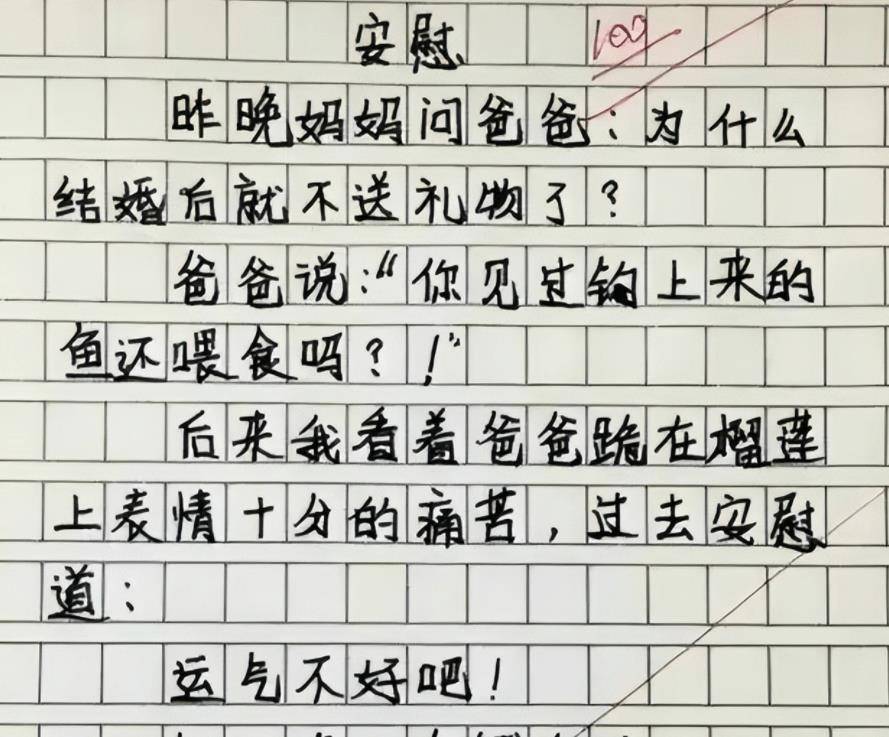 安慰 100
昨晚妈妈问爸爸:为什么
结婚后就不送礼物了?
爸爸说:“你见过钩上来的
鱼还喂食吗?!”
后来我看着爸爸跪在榴莲
上表情十分的痛苦,过去安慰
道:
运气不好吧!